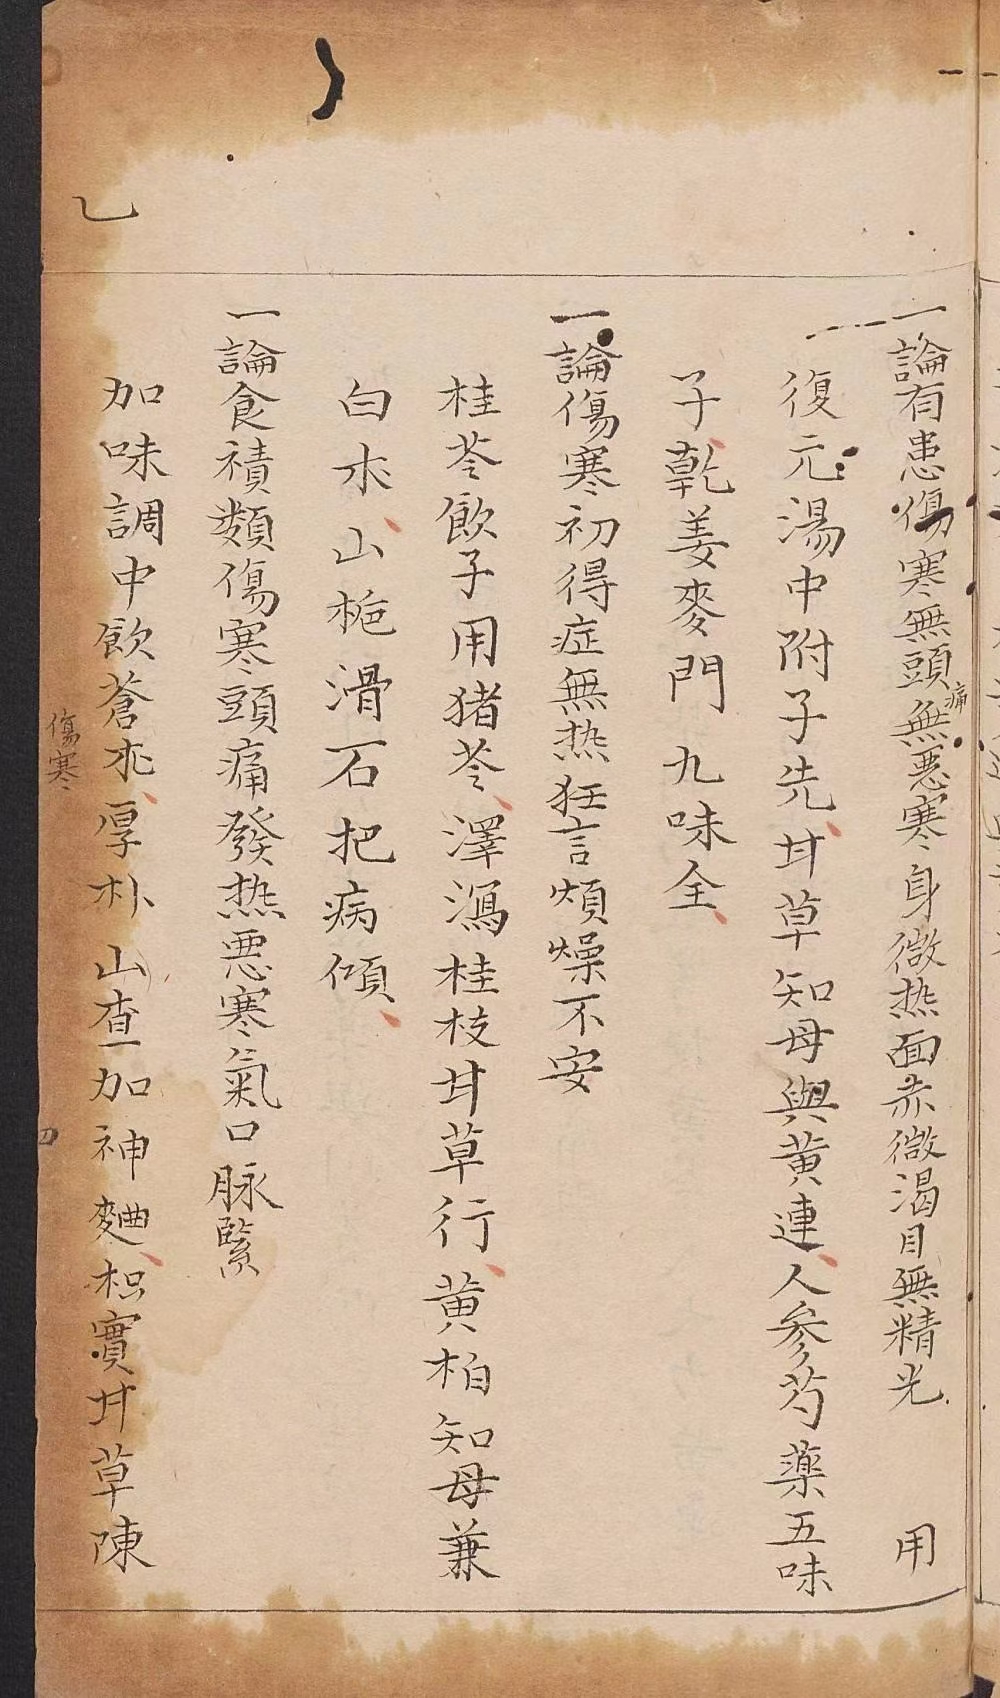 一論有患傷寒無頭痛無惡寒身微热面赤微渴目無精光 用
復元湯中附子先甘草知母與黄連人参芍薬五味
子乾姜麥門 九味全
一論傷寒初得症無热狂言煩燥不安
桂苓飲子用猪苓澤瀉桂枝甘草行黄柏知母兼
白朮山梔滑石把病傾
一論食積類傷寒頭痛發热悪寒氣口脉緊
加味調中飲蒼朮厚朴山查加神麯枳實甘草陳
傷寒
四
乙